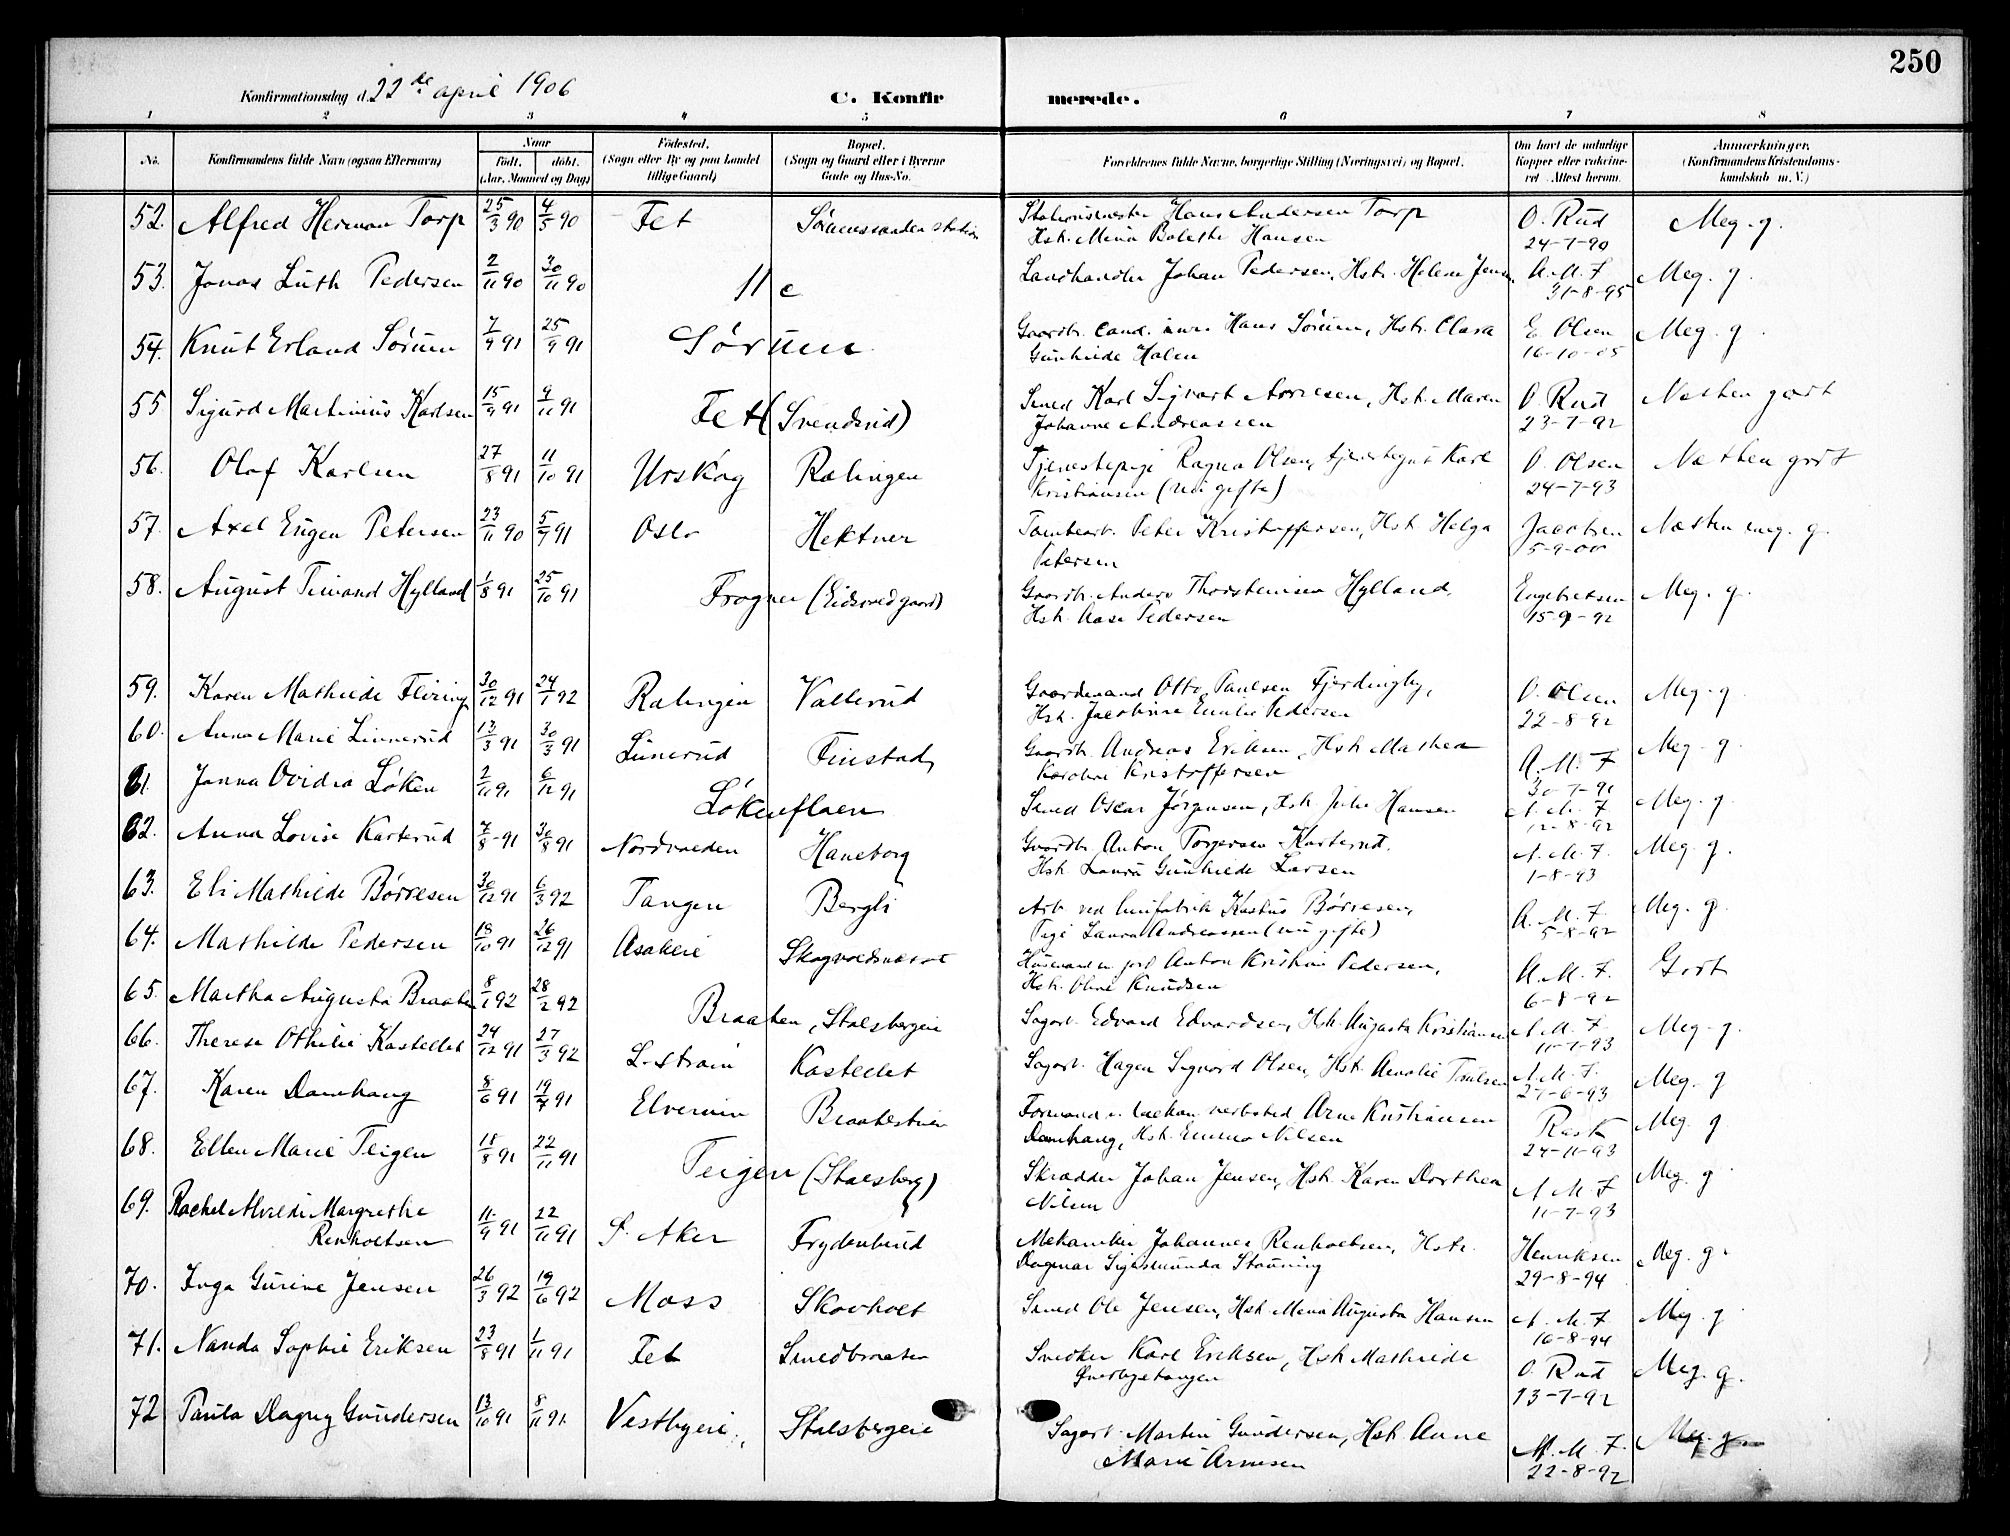 250
Konfirmationsdag d. 22de april 1906
C. Konfirmerede.
1 2 3 4 5 6 7 8
No. Konfirmandens fulde Navn (ogsaa Efternavn) Naar født, døbt. (Aar, Maaned og Dag) Fødested. (Sogn eller By og paa Landet tillige Gaard) Bopæl. (Sogn og Gaard eller i Byerne Gade og Hus-No. Forældrenes fulde Navne, borgerlige Stilling (Næringsvei) og Bopæl. Om havt de naturlige Kopper eller vakcineret - Attest herom. Anmerkninger. (Konfirmandens Kristendomskundskab m. V.)
52. Alfred Herman Torp 25/3 90 4/5 90 Fet Sørumssanden station Stationsmester Hans Andersen Torp O. Rud Meg. g.
Hst. Mina Bolethe Hansen 24-7-90
53. Jonas Luth Pedersen 2/11 90 30/11 90 Landhandler Johan Pedersen, Hst. Helene A. M. F. Meg. g.
31-8-95
54. Knut Erland Sørum 7/9 91 25/9 91 Sørum Gaardbr. cand. Hans Sørum, Hst. Clara E. Olsen Meg. g.
Gunhilde Holen 16-10-05
55 Sigurd Martinius Karlsen 15/9 91 9/11 91 Fet (Svendsrud) Smed Karl Sigvart Hst. Maren O. Rud Næsten godt
Johanne Andreassen 23-7-92
56. Olaf Karlsen 27/8 91 11/10 91 Urskog Rælingen Tjenestepige Ragna Olsen, Karl O. Olsen Næsten godt
Kristiansen (nu gifte) 24-7-93
57. Axel Eugen Petersen 23/11 90 5/9 91 Oslo Hektner Tomtearb. Peter Kristoffersen, Hst. Helga Jacobsen Næsten meg. g.
Petersen 5-9-00
58. August Timand Hylland 1/8 91 25/10 91 Frogner (Eidsvoldgaard) Gaardbr. Anders Thorstensen Hylland, Engebretsen Meg. g.
Hst. Aase Pedersen 15-9-92
59. Karen Mathilde 30/12 91 24/1 92 Rælingen Vallerud Gaardmand Otto Paulsen Fjerdingby, O. Olsen Meg. g.
Hst. Jacobine Emilie Pedersen 22-8-92
60. Anna Marie Linnerud 13/3 91 30/3 91 Linnerud Finstad Gaardbr. Andreas Eriksen, Hst. Mathea A. M. F. Meg. g.
Karoline Kristoffersen 30-7-91
61. Janna Ovidia Løken 2/11 91 6/12 91 Løkenflaen Smed Oscar Jørgensen, Hst. Julie Hansen A. M. F. Meg. g.
12-8-92
62. Anna Lovise Karterud 7/8 91 30/8 91 Nordvolden Haneborg Gaardbr. Anton Torgersen Karterud, A. M. F. Meg. g.
Hst. Laura Gunhilde Larsen 1-8-93
63. Eli Mathilde Børresen 30/12 91 6/3 92 Tangen Bergli Arb. ved Børresen, A. M. F. Meg. g.
Pige Laura Andreassen (nu gifte) 5-8-92
64. Mathilde Pedersen 18/10 91 26/12 91 Asakeie Skogvoldsneset Husmand m. jord Anton Kristian Pedersen, A. M. F. Godt
Hst. Oline Knudsen 6-8-92
65. Martha Augusta Braaten 8/1 92 28/2 92 Braaten, Stalsbergeie Sagarb. Edvard Edvardsen, Hst. Augusta Kristiansen A. M. F. Meg. g.
11-7-93
66. Therese Othilie Kastellet 24/12 91 27/3 92 L.strøm Kastellet Sagarb. Hagen Sigvard Olsen, Hst. Amalie Paulsen A. M. F. Meg. g
27-6-93
67. Karen Damhaug 8/6 91 19/7 91 Elverum Formand v. mekan. verksted Arne Kristiansen Rask Meg. g
Damhaug, Hst. Emma Nilsen 24-11-93
68. Ellen Marie Teigen 18/8 91 22/11 91 Teigen (Stalsberg) Skrædder Johan Jensen, Hst. Karen Dorthea A. M. F Meg. g
Nilsen 11-7-93
69. Rachel Alvilde Margrethe
Renholtsen 11/9 91 22/11 91 S. Aker Frydenlund Mekaniker Johannes Renholtsen, Hstr. Henriksen Meg. g.
Dagmar Sigismunda Stauning 29-8-94
70. Inga Gurine Jensen 26/3 92 19/6 92 Moss Skovholt Smed Ole Jensen, Hst. Mina Augusta Hansen A. M. F. Meg. g
10-8-94
71. Nanda Sophie Eriksen 23/8 91 1/11 91 Fet Smedbraaten Snedker Karl Eriksen, Hst. Mathilde O. Rud Meg. g.
13-7-92
72 Paula Dagny Gundersen 13/10 91 8/11 91 Vestbyeie Stalsbergeie Sagarb. Martin Gundersen, Hst. Anne A. M. F. Meg. g.
Marie Arnesen 22-8-92